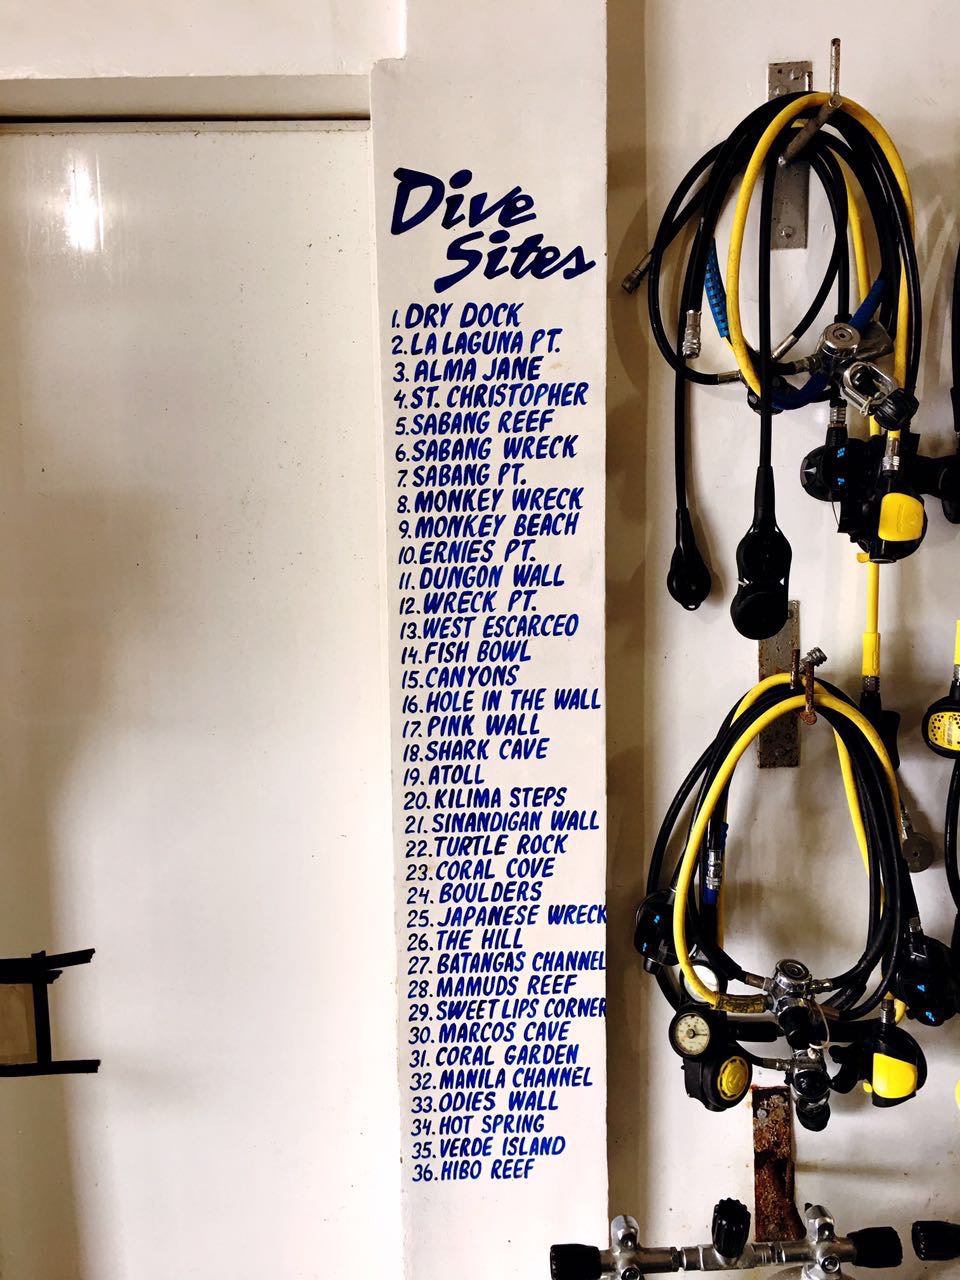 Dive
Sites
1. DRY DOCK
2. LA LAGUNA PT.
3. ALMA JANE
4. ST. CHRISTOPHER
5. SABANG REEF
6. SABANG WRECK
7. SABANG PT.
8. MONKEY WRECK
9. MONKEY BEACH
10. ERNIES PT.
11. DUNGON WALL
12. WRECK PT.
13. WEST ESCARCEO
14. FISH BOWL
15. CANYONS
16. HOLE IN THE WALL
17. PINK WALL
18. SHARK CAVE
19. ATOLL
20. KILIMA STEPS
21. SINANDIGAN WALL
22. TURTLE ROCK
23. CORAL COVE
24. BOULDERS
25. JAPANESE WRECK
26. THE HILL
27. BATANGAS CHANNEL
28. MAMUDS REEF
29. SWEET LIPS CORNER
30. MARCOS CAVE
31. CORAL GARDEN
32. MANILA CHANNEL
33. ODIES WALL
34. HOT SPRING
35. VERDE ISLAND
36. HIBO REEF